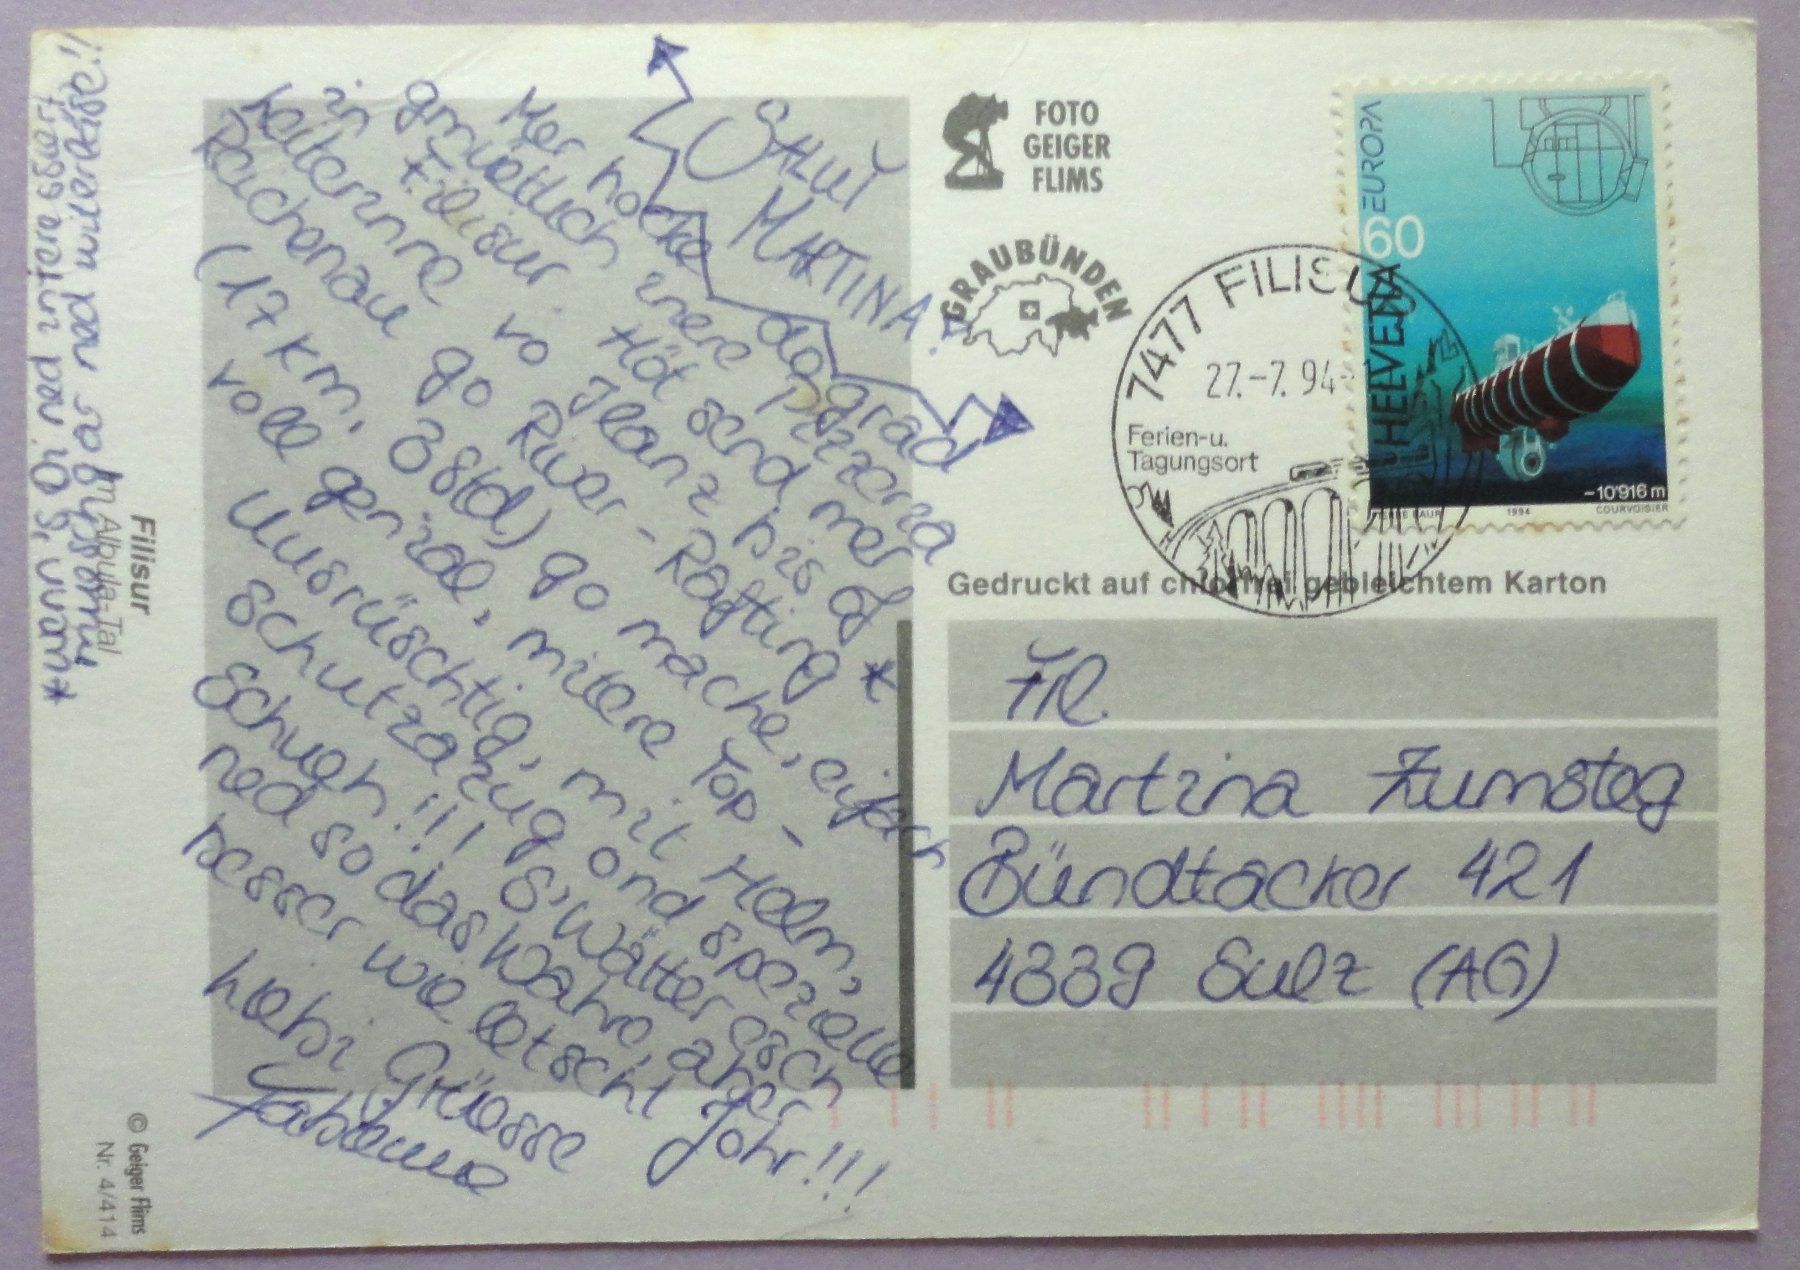 SALUT
MARTINA!
Mer hocke do grad
gmüetlich inere Pizzeria
in Filisur. Höt send mer
vo Ilanz bis of
Reichenau go River-Rafting *
(17 km, 3 Std) go mache, eifach
voll genial, mitere Top-
Uusrüschtig, mit Helm,
Schutzazug ond spezielle
Schueh!!! S'Wätter esch
ned so das Wahre, aber
besser wie letscht Johr!!!
Liebi Grüesse
Fabienne
*wenn's Di ned interessiert,
muesch ned wiiterläse!!
Filisur
im Albula-Tal
© Geiger Flims
Nr. 4/414
FOTO
GEIGER
FLIMS
GRAUBÜNDEN
7477 FILISUR
27.-7.94
Ferien-u.
Tagungsort
EUROPA
60
HELVETIA
-10'916 m
1994
COURVOISIER
Gedruckt auf chlorfrei gebleichtem Karton
Frl.
Martina Zumsteg
Bündtacker 421
4339 Sulz (AG)